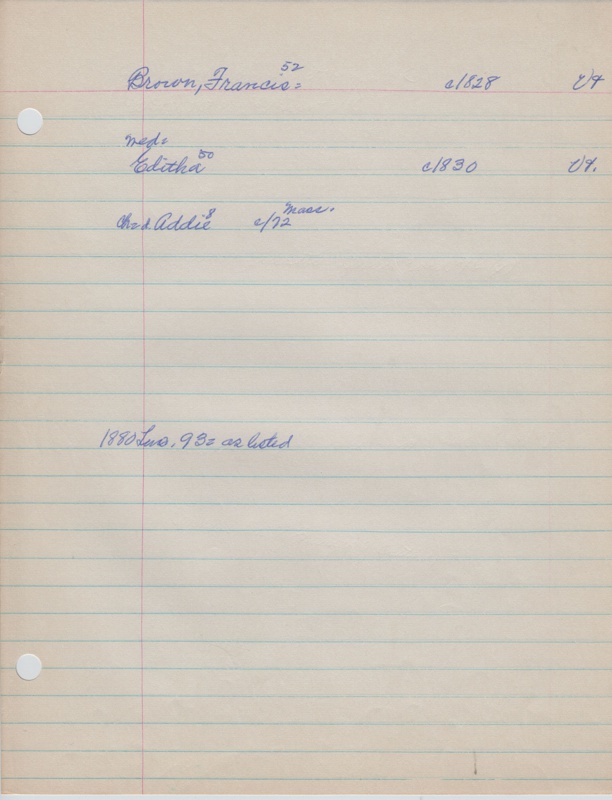 Brown, Francis 52 = c/1828 Vt
med =
Editha 50 c/1830 Vt.
Ch = d. Addie 8 c/72 Mass.
1880 93 = as listed